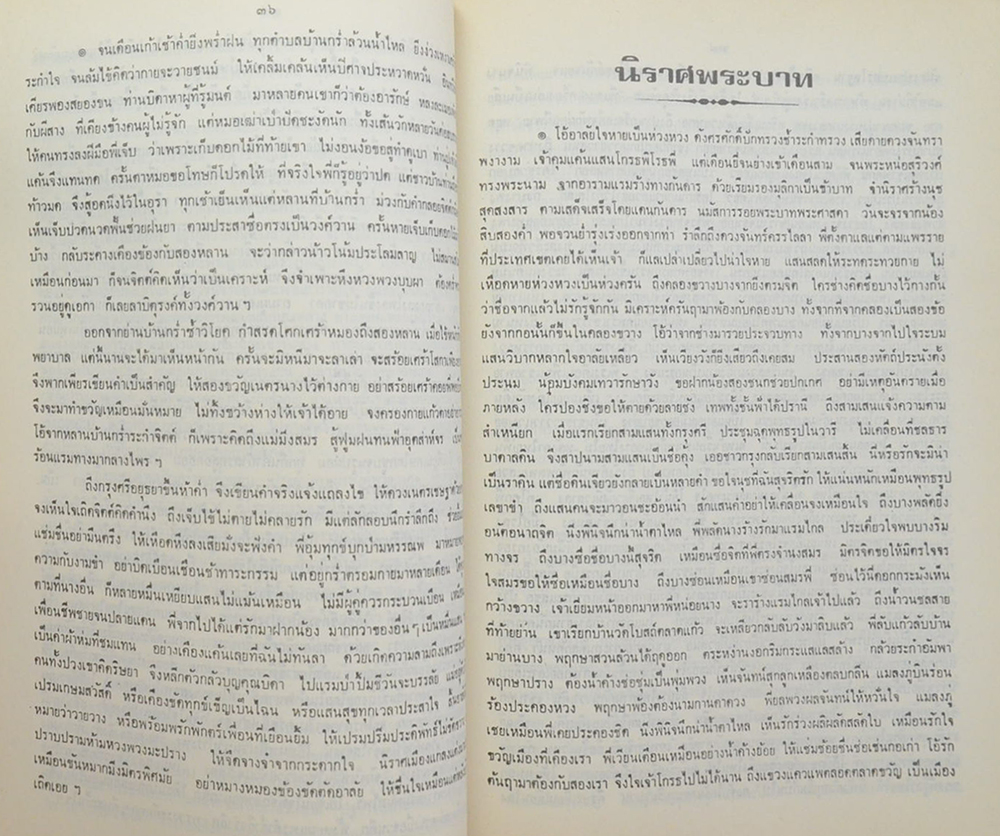 ๓๖
๏ จนเดือนเก้าเช้าค่ำยิ่งพรำฝน ทุกตำบลบ้านกร่ำล้วนน้ำไหล ยิ่งง่วงเหงา
ระกำใจ จนล้มไข้คิดว่ากายจะวายชนม์ ให้เคลิ้มเคล้นเห็นปีศาจประหวาดหวั่น
เศียรพองสยองขน ท่านบิดาหาผู้ที่รู้มนต์ มาหลายคนเขาก็ว่าต้องอารักษ์ หลงละเมอ
กับผีสาง ที่เคียงข้างคนผู้ไม่รู้จัก แต่หมอเฒ่าเป่าปัดชะงัดนัก ทั้งเส้นวักหลายวัน
ให้คนทรงลงผีมือพี่เจ็บ ว่าเพราะเก็บดอกไม้ที่ท้ายเขา ไม่งอนง้อขอสู่ทำดูเบา ท่านปู่
แค้นจึงแทนทด ครั้นตาหมอขอโทษก็โปรดให้ ที่จริงใจพี่ก็รู้อยู่ว่าปด แต่ชาวบ้าน
ท้าวมด จึงสู้อดนิ่งไว้ในอุรา ทุกเช้าเย็นเห็นแต่หลานที่บ้านกร่ำ ม่วงกับคำกลอยจิต
เห็นเจ็บปวดนวดฟั้นช่วยฝนยา ตามประสาซื่อตรงเป็นวงศ์วาน ครั้นหายเจ็บเก็บดอกไม้
บ้าง กลับระคางเคืองข้องกันสองหลาน จะว่ากล่าวน้าวโน้มประโลมลาญ ไม่สมาน
เหมือนก่อนมา ก็จนจิตต์คิดเห็นว่าเป็นเคราะห์ จึงจำเพาะหึงหวงพวงบุบผา ต้อง
รวนอยู่ดูเอกา ก็เลยลาบิตุรงค์ทั้งวงศ์วาน ฯ
ออกจากย่านบ้านกร่ำซ้ำวิโยค กำสรดโศกเศร้าหมองถึงสองหลาน เมื่อไข้หนัก
พยาบาล แต่นี้นานจะได้มาเห็นหน้ากัน ครั้นจะมิหนีมาจะลาเล่า จะสร้อยเศร้าโศกา
จึงพากเพียรเขียนคำเป็นสำคัญ ให้สองขวัญเนตรนางไว้ต่างกาย อย่าสร้อยเศร้าคอย
จึงจะมาทำขวัญเหมือนมั่นหมาย ไม่ทิ้งขว้างห่างให้เจ้าได้อาย จงครองกายแก้วตา
โอ้จากหลานบ้านกร่ำระกำจิตต์ ก็เพราะคิดถึงแม่มิ่งสมร สู้ฟูมฝนทนฟ้าอุตส่าห์จร
ร้อนแรมทางมากลางไพร ฯ
ถึงกรุงศรีอยุธยาขึ้นห้าค่ำ จึงเขียนคำจริงแจ้งแถลงไข ให้ดวงเนตรเชษฐา
จงเห็นใจเถิดจิตต์คิดคำนึง ถึงเจ็บไข้ไม่ตายไม่คลายรัก มีแต่ลักลอบนึกรำลึกถึง
แช่มชื่นอย่ามึนตรึง ให้เหือดหึงลงเสียมั่งจะฟังคำ พี่อุ้มทุกข์บุกป่ามหรรณพ มา
ความกับงามขำ อย่าบิดเบือนเชือนช้าทาระกรรม แต่อยู่กร่ำตรอมกายมาหลายเดือน
ตามที่นางอื่น ก็หลายหมื่นเหยียบแสนไม่แม้นเหมือน ไม่มีผู้คู่ควรกระบวนเบือน
เพื่อนชีพชายจนปลายแดน พี่จากไปได้แต่รักมาฝากน้อง มากกว่าของอื่น ๆ เป็นหมื่นแสน
เป็นค่าผ้าห่มที่ชมแทน อย่างเคืองแค้นเลยที่ฉันไม่ทันลา ด้วยเกิดความลามถึง
คนทั้งปวงเขาคิดริษยา จึงหลีกตัวกลัวบุญคุณบิดา ไปแรมป่าปิ้มชีวันจะบรรลัย
เปรมเกษมสวัสดิ์ หรือเคืองขัดทุกข์เข็ญเป็นไฉน หรือแสนสุขทุกเวลาประสาใจ
หมายว่าวายวาง หรือพร้อมพรักพักตร์เพื่อนที่เยือนยิ้ม ให้เปรมปริ่มประดิพัทธ์
ปราบปรามห้ามหวงพวงมะปราง ให้จืดจางจำจากกระดากใจ นิราศเมืองแกลง
เหมือนขันหมากมิ่งมิตรพิศมัย อย่าหมางหมองข้องขัดตัดอาลัย ให้ชื่นใจเหมือน
เถิดเอย ฯ
นิราศพระบาท
๏ โอ้อาลัยใจหายเป็นห่วงหวง ดังศรศักดิ์ปักทรวงช้ำระกำทรวง เสียดายดวงจันทรา
พางาม เจ้าคุมแค้นแสนโกรธพิโรธพี่ แต่เดือนยี่จนย่างเข้าเดือนสาม จนพระหน่อสุริวงศ์
ทรงพระนาม จากอารามแรมร้างทางกันดาร ด้วยเรียมรองมุลิกาเป็นข้าบาท จำนิราศร้างนุช
สุดสงสาร ตามเสด็จเสร็จโดยแดนกันดาร นมัสการรอยพระบาทพระศาสดา วันจะจรจากน้อง
สิบสองค่ำ พอจวนย่ำรุ่งเร่งออกจากท่า รำลึกถึงดวงจันทร์ครรไลลา พี่ตั้งตาแลแต่ตามแพรราย
ที่ประเทศเขตเคยได้เห็นเจ้า ก็แลเปล่าเปลี่ยวไปน่าใจหาย แสนสลดให้ระทดระทวยกาย ไม่
เหือดหายห่วงหวงเป็นห่วงครัน ถึงคลองขวางบางจากยิ่งตรมจิต ใครช่างคิดชื่อบางไว้กางกั้น
ว่าชื่อจากแล้วไม่รักรู้จักกัน มิเคราะห์ครันฤามาพ้องกับคลองบาง ทั้งจากที่จากคลองเป็นสองข้อ
ยังจากกอนั้นก็ขึ้นในคลองขวาง โอ้ว่าจากช่างมารวยประจวบทาง ทั้งจากบางจากไปใจระบม
แสนวิบากหลากใจอาลัยเหลียว เห็นเวียงวังก็ยิ่งเสียวถึงเคยสม ประสานสองหัตถ์ประนังตั้ง
ประนม น้อมบังคมเทวารักษาวัง ขอฝากน้องสองชนกช่วยปกเกศ อย่ามีเหตุอันตรายเมื่อ
ภายหลัง ใครปองชิงขอให้ตายด้วยรายชัง เทพทั้งชั้นฟ้าได้ปรานี ถึงสามเสนแจ้งความตาม
สำเหนียก เมื่อแรกเรียกสามแสนทั้งกรุงศรี ประชุมฉุดพุทธรูปในวารี ไม่เคลื่อนที่ชลธาร
บาดาลดิน จึงสาปนามสามแสนเป็นชื่อคุ้ง เออชาวกรุงกลับเรียกสามเสนสิ้น นี่หรือรักจะมิน่า
เป็นราคิน แต่ชื่อดินเจียวยังกลายเป็นหลายคำ ขอใจนุชที่ฉันสุจริตรัก ให้แน่นหนักเหมือนพุทธรูป
เลขาขำ ถึงแสนคนจะมาวอนชะอ้อนนำ สักแสนคำอย่าให้เคลื่อนจงเหมือนใจ ถึงบางพลัดยิ่ง
อนัดอนาถจิต นิ่งพินิจนึกน่าน้ำตาไหล พี่พลัดนางร้างรักมาแรมไกล ประเดี๋ยวใจพบบางริม
ทางจร ถึงบางซื่อชื่อบางนี้สุจริต เหมือนซื่อจิตที่พี่ตรงจำนงสมร มิตรจิตขอให้มิตรใจจร
ใจสมรขอให้ซื่อเหมือนชื่อบาง ถึงบางซ่อนเหมือนเขาซ่อนสมรพี่ ซ่อนไว้นี่ดอกกระมังเห็น
กว้างขวาง เจ้าเยี่ยมหน้าออกมาหาพี่หน่อยนาง จะรารั้งแรมไกลเจ้าไปแล้ว ถึงน้ำวนชลสาย
ที่ท้ายย่าน เขาเรียกบ้านวัดโบสถ์ตลาดแก้ว จะเหลียวกลับลับวังมาลิบแล้ว พี่ลับแก้วลับบ้าน
มาย่านบาง พฤกษาสวนล้วนได้ฤดูออก ตระหง่านงอกริมกระแสแลสล้าง กล้วยระกำอัมพา
พฤกษาปราง ต้องน้ำค้างช่อชุ่มเป็นพุ่มพวง เห็นจันทน์สุกลูกเหลืองตลบกลิ่น แมลงภู่บินร่อน
ร้องประคองหวง พฤกษาพ้องต้องนามกานดาดวง พี่ยลพวงผลจันทน์ให้หวั่นใจ แมลงภู่
เชยเหมือนพี่เคยประคองชิด นิ่งพินิจนึกน่าน้ำตาไหล เห็นรักร่วงผลิผลัดสลัดใบ เหมือนรักใจ
ขวัญเมืองที่เคืองเรา พี่เวียนเตือนเหมือนอย่างน้ำค้างย้อย ให้แช่มช้อยชื่นช่อเช่นกอเก่า โอ้รัก
ต้นฤามาต้องกับสองเรา จึงใจเจ้าโกรธไปไม่ได้นาน ถึงแขวงแควแพตลอดตลาดขวัญ เป็นเมือง